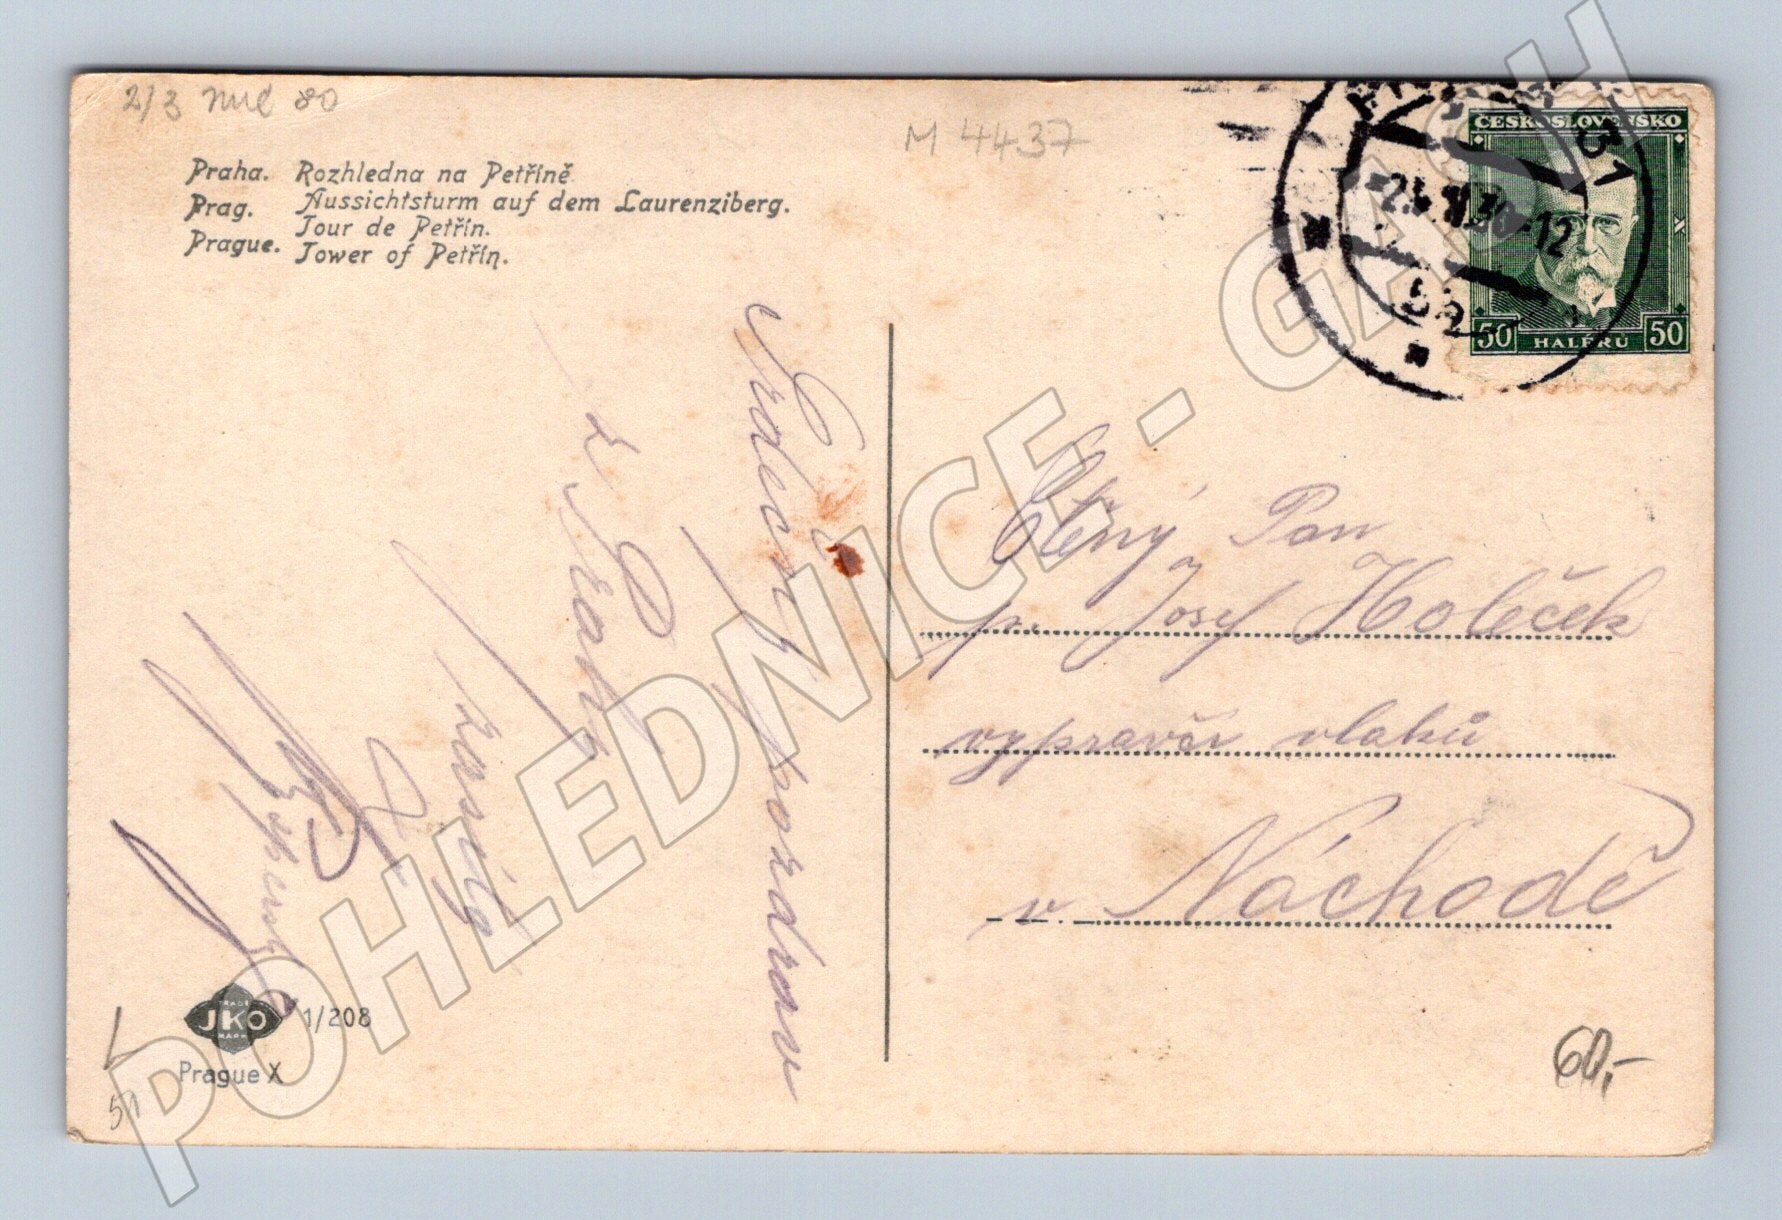 2/3 80
M 4437
Praha. Rozhledna na Petříně
Prag. Aussichtsturm auf dem Laurenziberg.
Tour de Petřín.
Prague. Tower of Petřín.
ČESKOSLOVENSKO
50 HALÉŘŮ 50
31
30-12
Srdečný pozdrav
z Prahy
zasílá
Ctěný Pan
p. Josef Holeček
výpravčí vlaků
v. Náchodě
TRADE
JKO
MARK
1/208
Prague X
51
60,-
POHLEDNICE - GASH